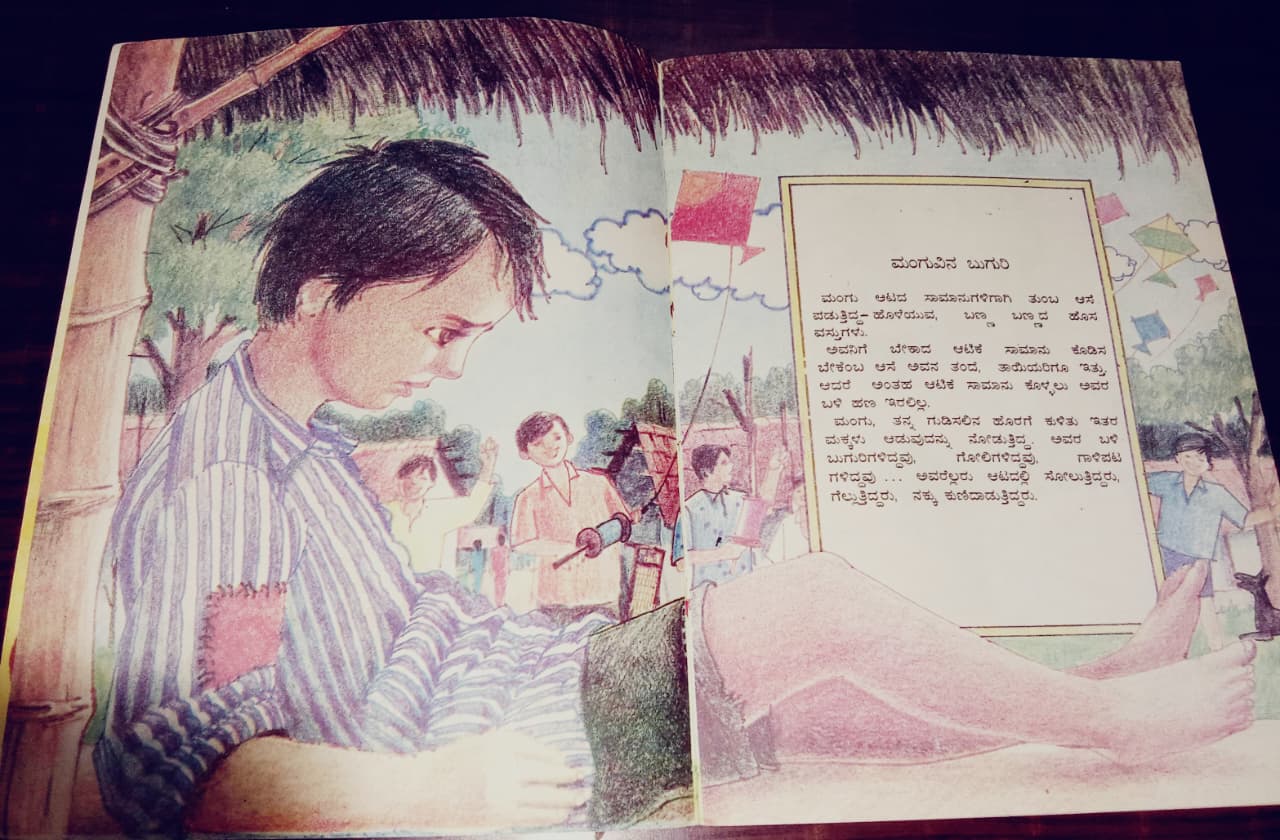 ಮಂಗುವಿನ ಬುಗುರಿ
ಮಂಗು ಆಟದ ಸಾಮಾನುಗಳಿಗಾಗಿ ತುಂಬ ಆಸೆ
ಪಡುತ್ತಿದ್ದ– ಹೊಳೆಯುವ, ಬಣ್ಣ ಬಣ್ಣದ ಹೊಸ
ವಸ್ತುಗಳು.
ಅವನಿಗೆ ಬೇಕಾದ ಆಟಿಕೆ ಸಾಮಾನು ಕೊಡಿಸ
ಬೇಕೆಂಬ ಆಸೆ ಅವನ ತಂದೆ, ತಾಯಿಯರಿಗೂ ಇತ್ತು,
ಆದರೆ ಅಂತಹ ಆಟಿಕೆ ಸಾಮಾನು ಕೊಳ್ಳಲು ಅವರ
ಬಳಿ ಹಣ ಇರಲಿಲ್ಲ.
ಮಂಗು, ತನ್ನ ಗುಡಿಸಲಿನ ಹೊರಗೆ ಕುಳಿತು ಇತರ
ಮಕ್ಕಳು ಆಡುವುದನ್ನು ನೋಡುತ್ತಿದ್ದ. ಅವರ ಬಳಿ
ಬುಗುರಿಗಳಿದ್ದವು, ಗೋಲಿಗಳಿದ್ದವು, ಗಾಳಿಪಟ
ಗಳಿದ್ದವು ... ಅವರೆಲ್ಲರು ಆಟದಲ್ಲಿ ಸೋಲುತ್ತಿದ್ದರು,
ಗೆಲ್ಲುತ್ತಿದ್ದರು, ನಕ್ಕು ಕುಣಿದಾಡುತ್ತಿದ್ದರು.